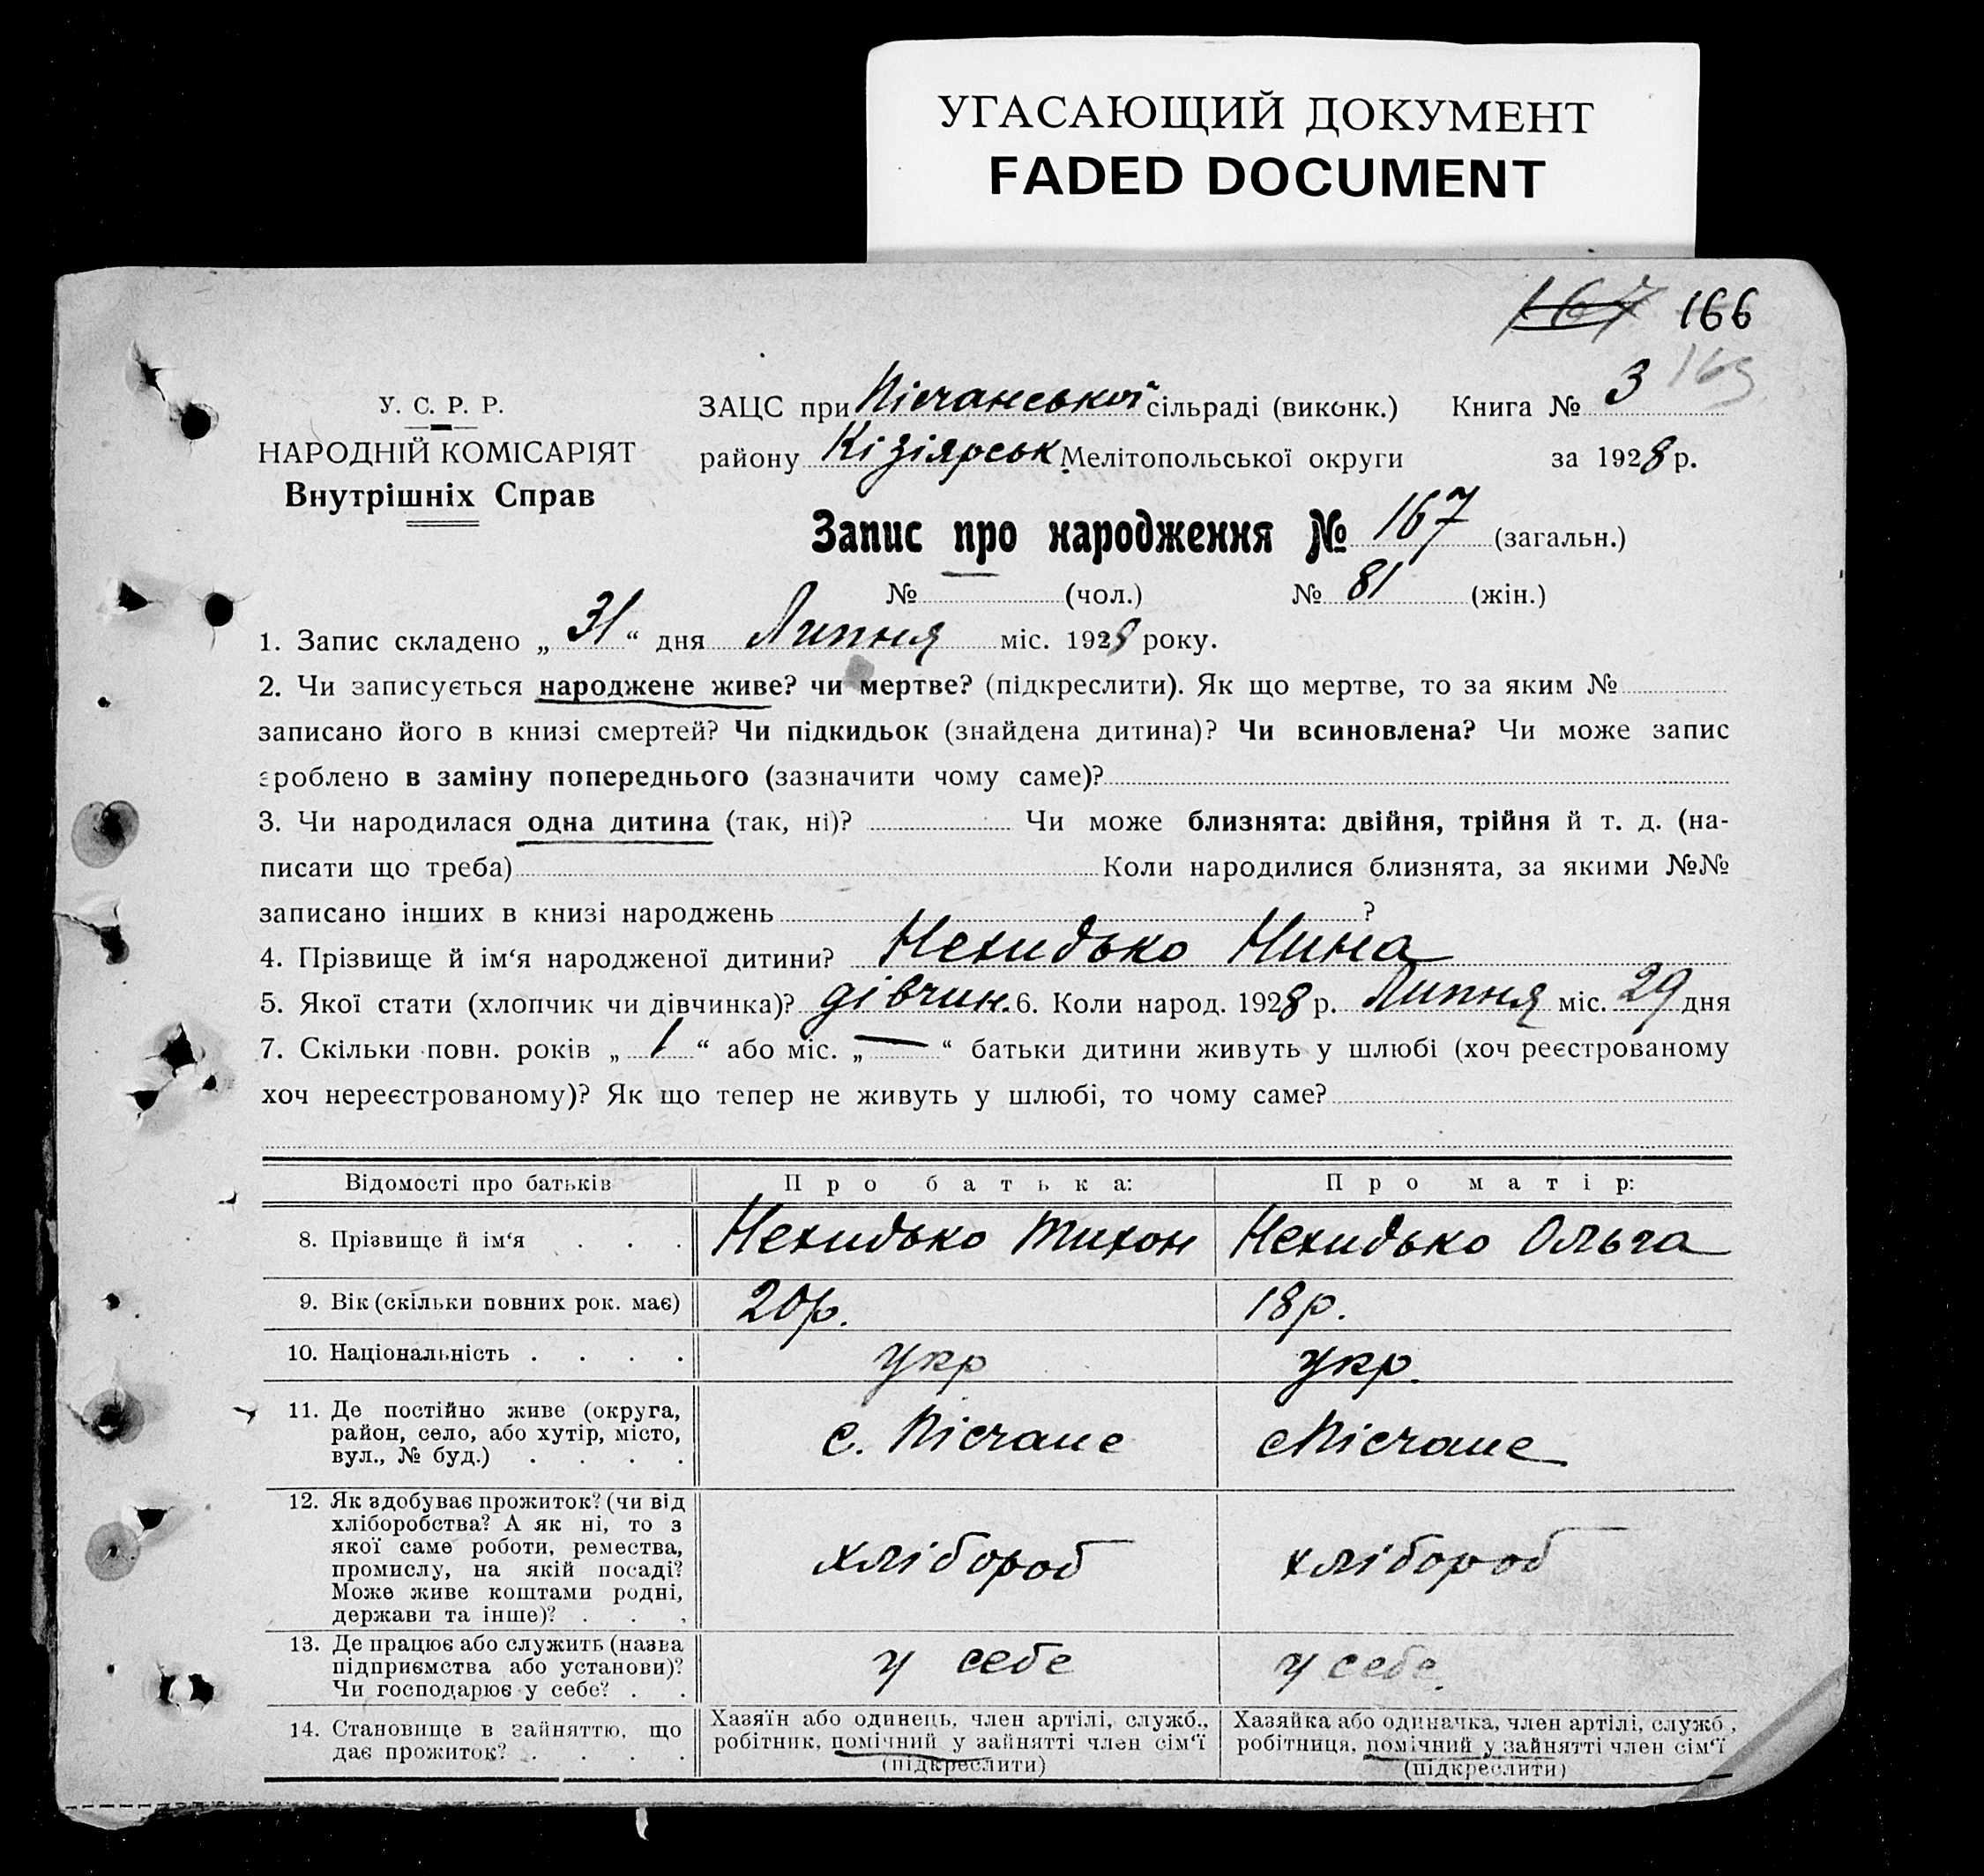 УГАСАЮЩИЙ ДОКУМЕНТ
FADED DOCUMENT
167 166
163
У. С. Р. Р.
НАРОДНІЙ КОМІСАРІЯТ
Внутрішніх Справ
ЗАЦС при Пісчанської сільраді (виконк.) Книга № 3
району Кізіярськ. Мелітопольської округи за 1928 р.
Запис про народження № 167 (загальн.)
№ (чол.) № 81 (жін.)
1. Запис складено „ 31 “ дня Липня міс. 1928 року.
2. Чи записується народжене живе? чи мертве? (підкреслити). Як що мертве, то за яким №
записано його в книзі смертей? Чи підкидьок (знайдена дитина)? Чи всиновлена? Чи може запис
зроблено в заміну попереднього (зазначити чому саме)?
3. Чи народилася одна дитина (так, ні)? Чи може близнята: двійня, трійня й т. д. (на-
писати що треба) Коли народилися близнята, за якими №№
записано інших в книзі народжень ?
4. Прізвище й ім‘я народженої дитини? Нехидько Нина
5. Якої стати (хлопчик чи дівчинка)? дівчин. 6. Коли народ. 1928 р. Липня міс. 29 дня
7. Скільки повн. років „ 1 “ або міс. „ — “ батьки дитини живуть у шлюбі (хоч реєстрованому
хоч нереєстрованому)? Як що тепер не живуть у шлюбі, то чому саме?
Відомості про батьків Про батька: Про матір:
8. Прізвище й ім‘я . . . Нехидько Тихон Нехидько Ольга
9. Вік (скільки повних рок. має) 20 р. 18 р.
10. Національність . . . . укр укр.
11. Де постійно живе (округа,
район, село, або хутір, місто,
вул., № буд.) . . . .
с. Пісчане с Пісчане
12. Як здобуває прожиток? (чи від
хліборобства? А як ні, то з
якої саме роботи, ремества,
промислу, на якій посаді?
Може живе коштами родні,
держави та інше)? . . .
хлібороб хлібороб
13. Де працює або служить (назва
підприємства або установи)?
Чи господарює у себе? . .
у себе у себе.
14. Становище в зайняттю, що
дає прожиток? . . . .
Хазяїн або одинець, член артілі, служб.,
робітник, помічний у зайнятті член сім‘ї
(підкреслити)
Хазяйка або одиначка, член артілі, служб.,
робітниця, помічний у зайнятті член сім‘ї
(підкреслити)